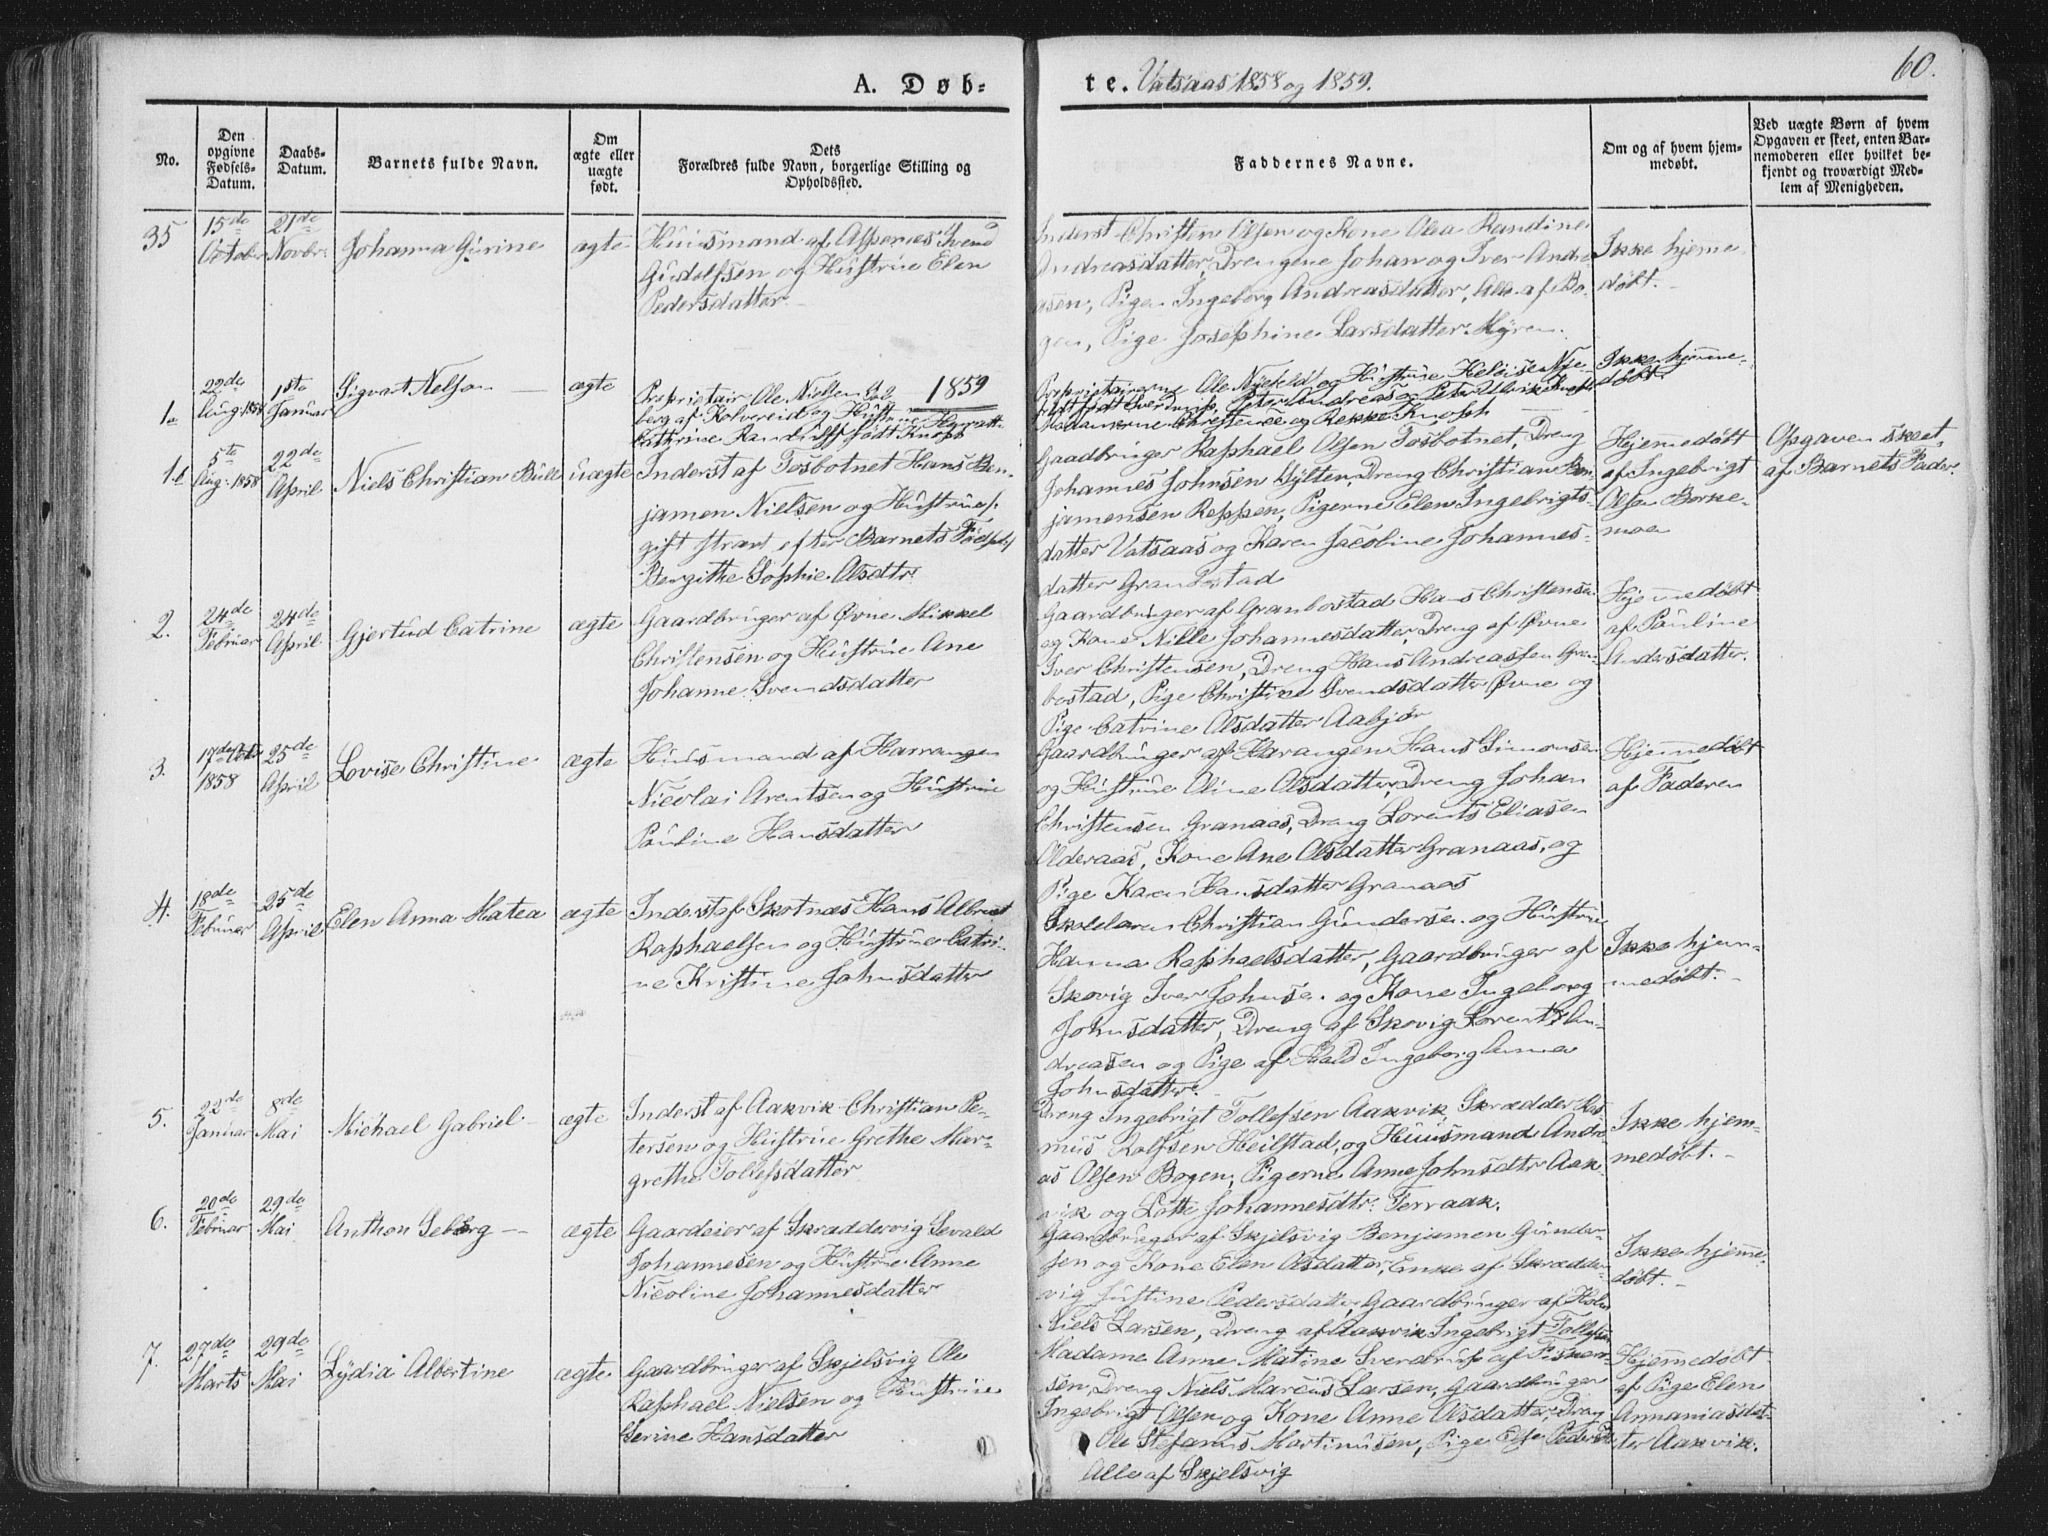 60.
A. Døb-
te. Vatsaas 1858 og 1859.
No.
Den opgivne Fødsels-Datum.
Daabs-Datum.
Barnets fulde Navn.
Om ægte eller uægte født.
Dets
Forældres fulde Navn, borgerlige Stilling og
Opholdsted.
Faddernes Navne.
Om og af hvem hjem-
medøbt.
Ved uægte Børn af hvem
Opgaven er skeet, enten Bar-
nemoderen eller hvilket be-
kjendt og troværdigt Med-
lem af Menigheden.
35
15de October
21de Novbr:
Johanna Gurine
ægte
Huusmand af Aspenes Svend
Gudolfsen og Hustrue Elen
Pedersdatter
Inderst Christen Olsen og Kone Olea Randine
Andreasdatter, Drengene Johan og Iver Andre-
asen, Pigen Ingeborg Andreasdatter, Alle af Bo-
gen, Pige Josephine Larsdatter Myren.
Ikke hjeme-
døbt.
1859
1a
22de Aug: 1858
1ste Januar
Sigvart Nelson
ægte
Proprietair Ole Nielsen Col
berg af Kolvereid og Hustrue
Cathrine Randulff født Knoph
Proprietairerne Ole Nyefeld og Hustrue Heloise Nye-
feldt født Sverdrup, Peter Andreas og Peter Ulrik Knoph
Madamerne Christence og Rekke Knoph
Ikke hjemme-
døbt.
1b
5te Aug: 1858
22de April
Niels Christian Bull
uægte
Inderst af Tosbotnet Hans Ben-
jamen Nielsen og Hustrue,
gift strax efter Barnets Fødsel,
Bergithe Sophie Olsdtr:
Gaardbruger Raphael Olsen Tosbotnet, Dreng
Johannes Johnsen Hylten, Dreng Christian Ben-
jamensen Reppen, Pigerne Elen Ingebrigts-
datter Vatsaas og Karen Jacobine Johannes-
datter Granbostad
Hjemmedøbt
af Ingebrigt
Olsen Borke-
moe
Opgaven skeet
af Barnets Fader.
2.
24de Februar
24de April
Gjertrud Catrine
ægte
Gaardbruger af Øvne Mikkel
Christensen og Hustrue Ane
Johanne Svendsdatter
Gaardbruger af Granbostad Hans Christensen
og Kone Nille Johannesdatter, Dreng af Øvne
Iver Christensen, Dreng Hans Andreassen Gran-
bostad, Pige Christine Svendsdatter Øvne og
Pige Catrine Olsdatter Aabjør
Hjemmedøbt
af Pauline
Andersdatter.
3.
17de Octbr 1858
25de April
Lovise Christine
ægte
Huusmand af Harrangen
Nicolai Arentsen og Hustrue
Pauline Hansdatter
Gaardbruger af Harangen Hans Simonsen
og Hustrue Aine Olsdatter, Dreng Johan
Christensen Granaas, Dreng Lorents Eliasen
Olderaas, Kone Ane Olsdatter Granaas, og
Pige Karen Hansdatter Granaas
Hjemmedøbt
af Faderen
4.
18de Februar
25de April
Elen Anna Matea
ægte
Inderst af Skotnæs Hans Albrigt
Raphaelsen og Hustrue Catri-
ne Kristine Johnsdatter
Skolelærer Christian Gundersen og Hustrue
Hanna Raphaelsdatter, Gaardbruger af
Skovig Iver Johnsen og Kone Ingeborg
Johnsdatter, Dreng af Skovig Lorents An-
dreasen og Pige af Hald Ingeborg Anna
Johnsdatter.
Ikke hjem-
medøbt.
5.
22de Januar
8de Mai
Michael Gabriel
ægte
Inderst af Aakvik Christian Pe-
tersen og Hustrue Grethe Mar-
grethe Tollefsdatter
Dreng Ingebrigt Tollefsen Aakvik, Skrædder Ras-
mus Rolfsen Heilstad, og Huusmand Andre-
as Olsen Bogen, Pigerne Anne Johnsdtr Aak-
vik og Lotte Johannesdtr: Terraak.
Ikke hjem-
medøbt.
6.
20de Februar
29de Mai
Anthon Seberg
ægte
Gaardeier af Skræddervig Sevald
Johannesen og Hustrue Anne
Nicoline Johannesdatter
Gaardbruger af Skjelsvig Benjamen Gunder-
sen og Kone Elen Olsdatter, Enke af Skrædder-
vig Justine Pedersdatter, Gaardbruger af Holm
Niels Larsen, Dreng af Aakvik Ingebrigt Tollefsen
Ikke hjemme-
døbt.
7.
27de Marts
29de Mai
Lydia Albertine
ægte
Gaardbruger af Skjelsvig Ole
Raphael Nielsen og Hustrue
Serine Hansdatter
Madame Anne Matine Sverdrup af
Dreng Niels Marcus Larsen, Gaardbruger
Ingebrigt Olsen og Kone Anne Olsdatter, Dreng
Ole Stefanus Martinusen, Pige Else
Alle af Skjelsvig
Hjemmedøbt
af Pige Elen
Annaniasdat-
ter Aakvik.